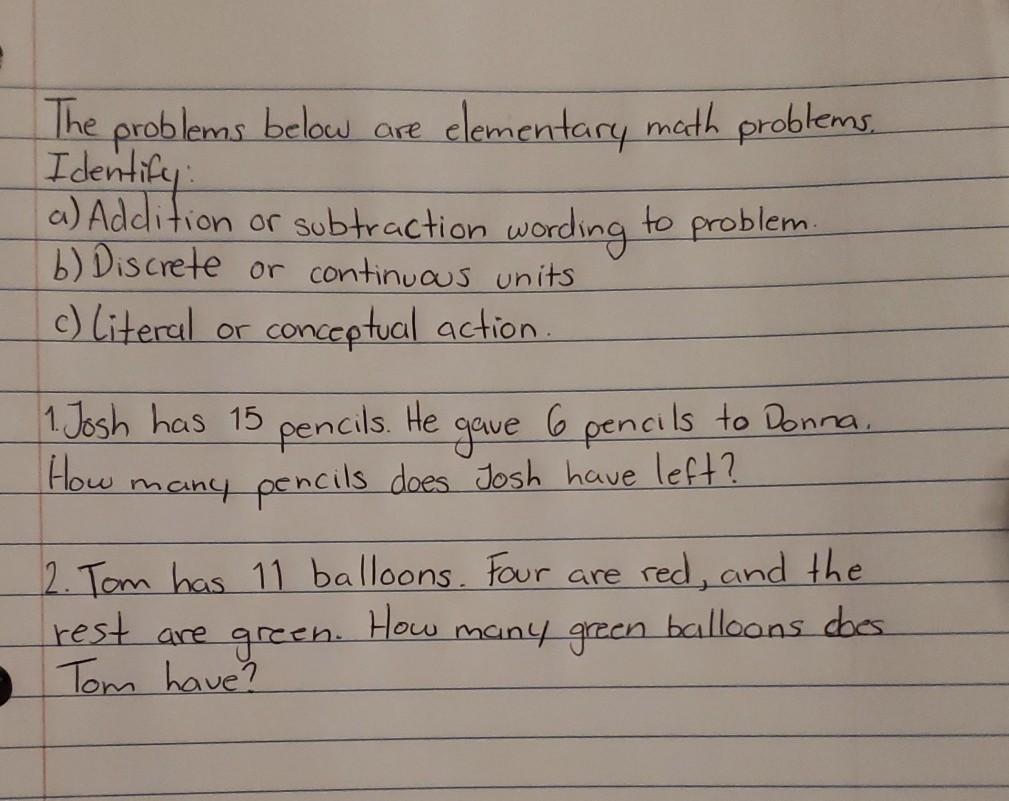 The problems below are elementary math problems.
Identify:
a) Addition or subtraction wording to problem.
b) Discrete or continuous units
c) Literal or conceptual action.
1. Josh has 15 pencils. He gave 6 pencils to Donna.
How many pencils does Josh have left?
2. Tom has 11 balloons. Four are red, and the
rest are green. How many green balloons does
Tom have?